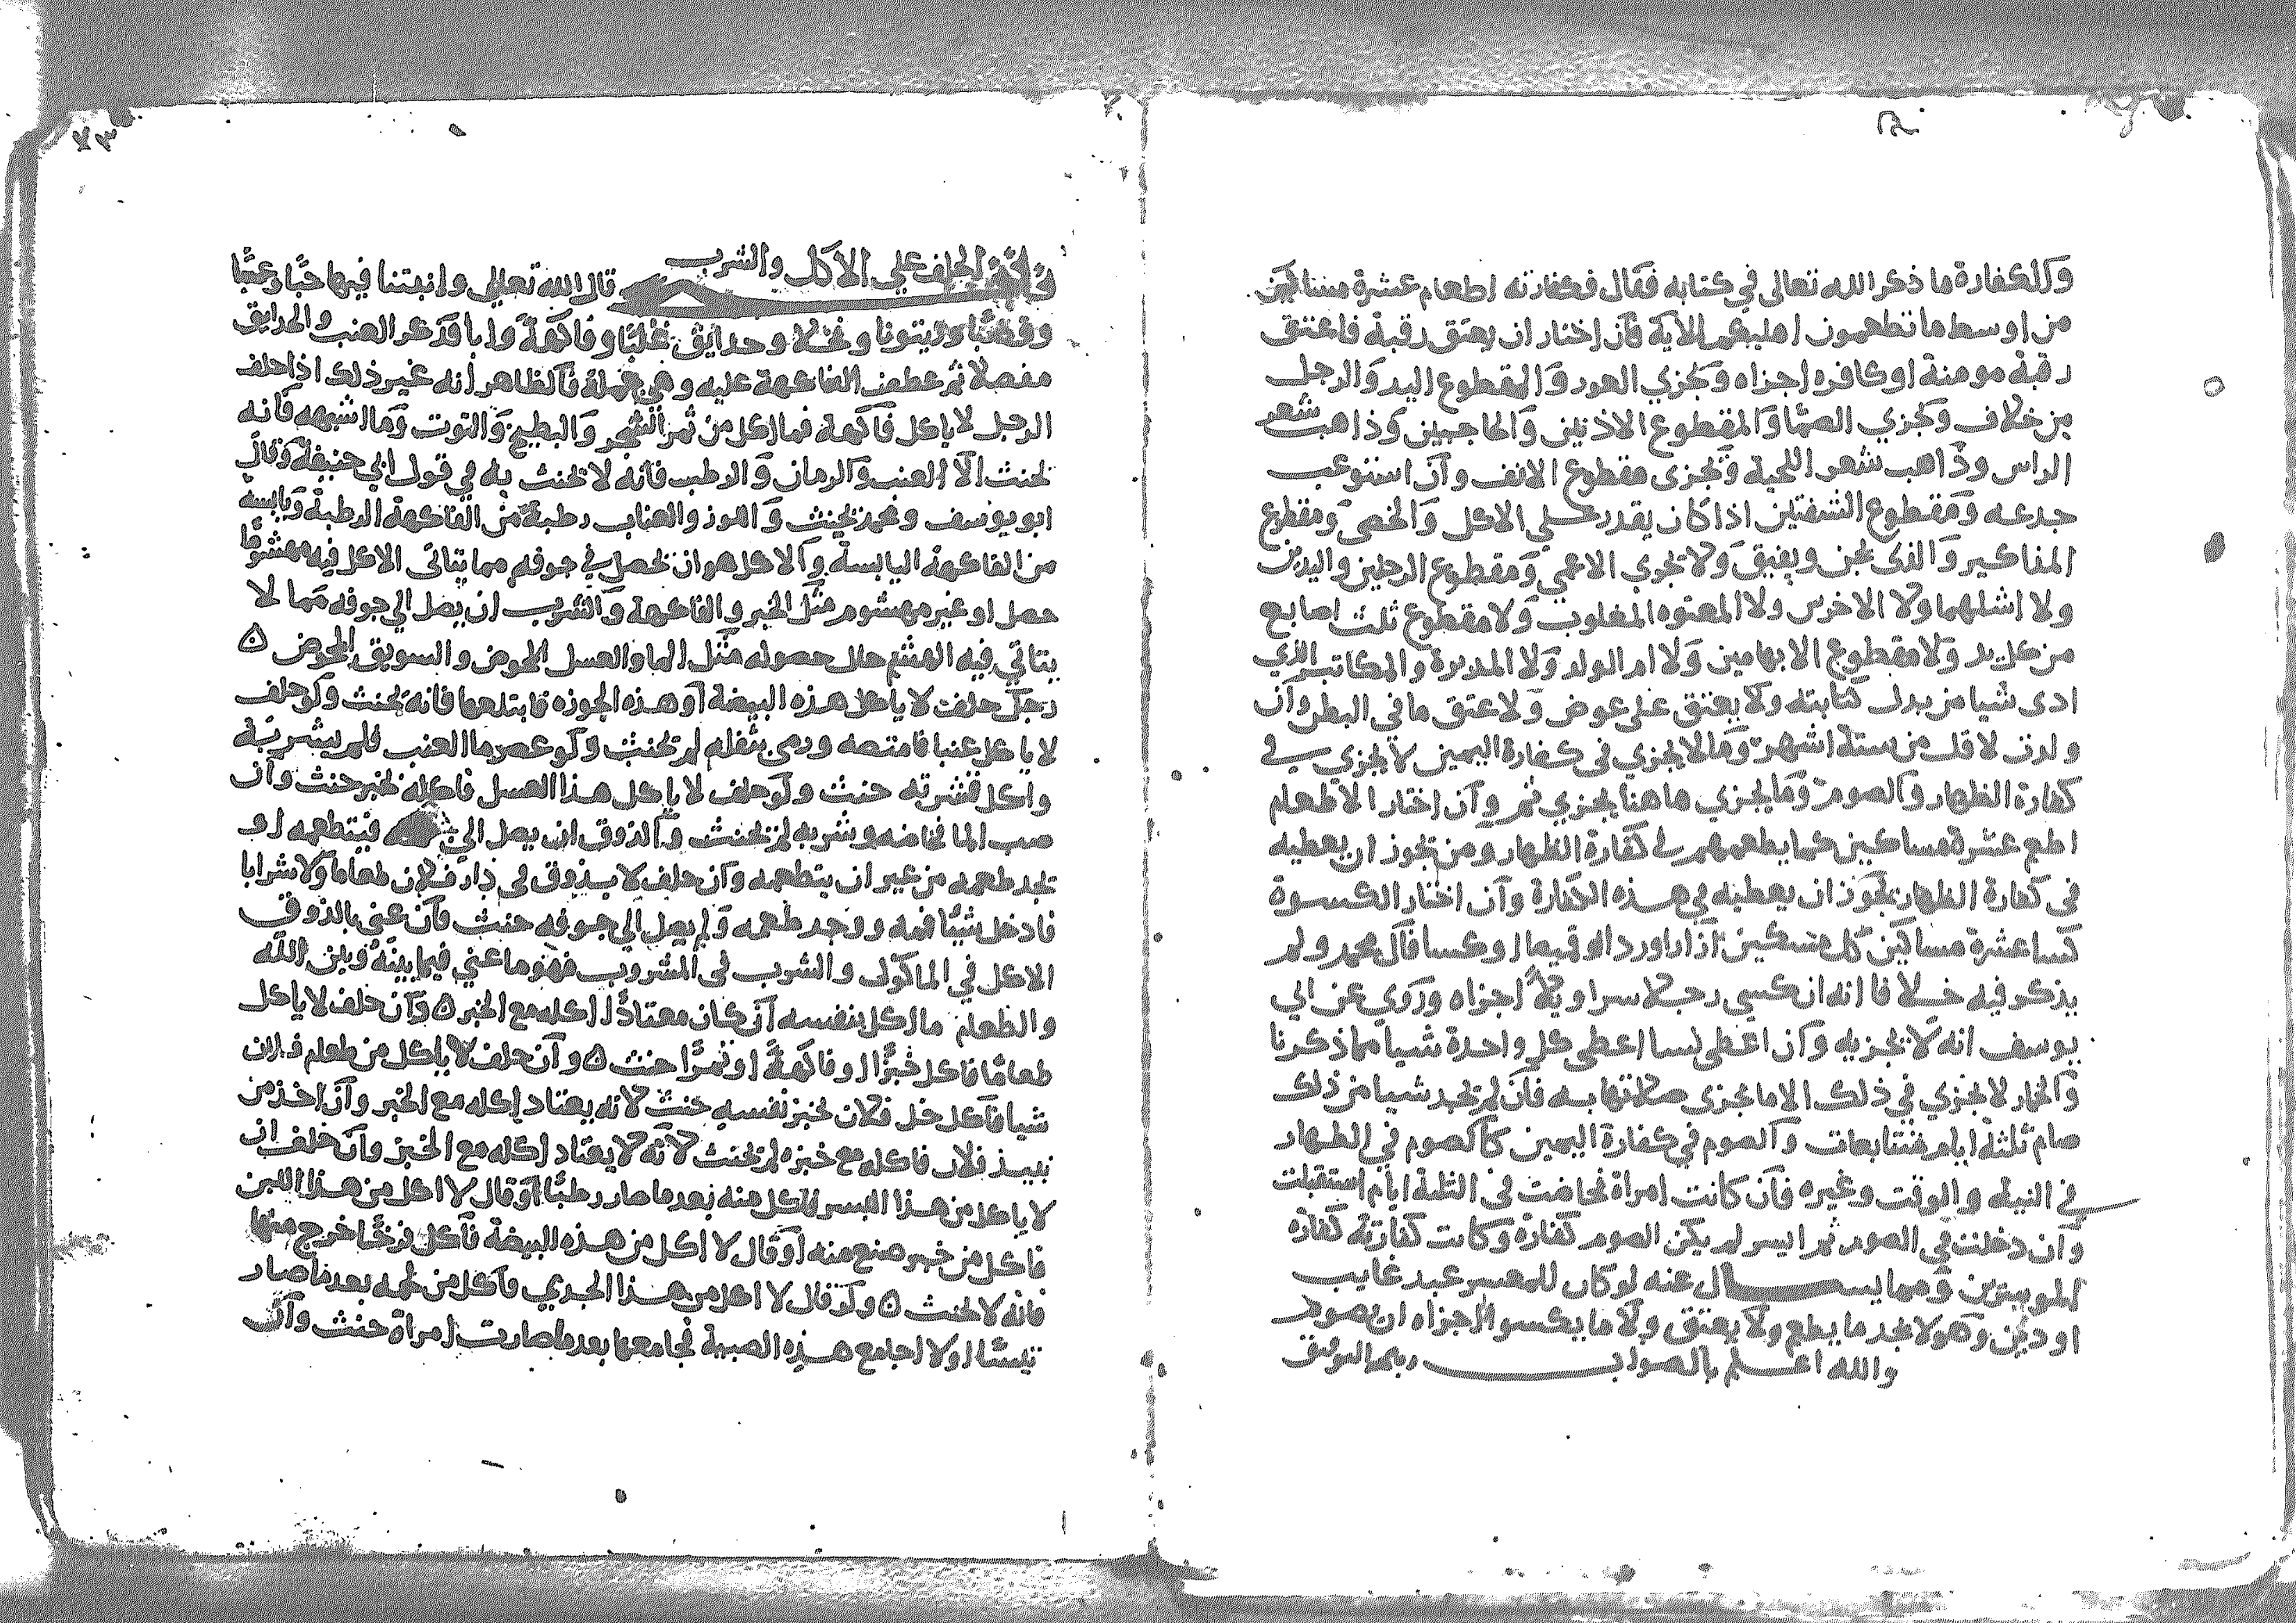 وكل كفارة ما ذكر الله تعالى في كتابه فقال فكفارته اطعام عشرة مساكين
من اوسط ما تطعمون اهليكم الآية فان اختار ان يعتق رقبة فاعتق
رقبة مومنة او كافره اجزاه ويجزي العور والمقطوع اليد والرجل
من خلاف ويجزي الصما والمقطوع الاذنين والحاجبين وذاهب شعر
الراس وذاهب شعر اللحية ويجزى مقطوع الانف وان استوعب
جدعه ومقطوع الشفتين اذا كان يقدر على الاكل والخصي ومقطوع
المذاكير والذى يجن ويفيق ولا تجزي الاعمي ومقطوع الرجلين واليدين
ولا اشلهما ولا الاخرس ولا المعتوه المغلوب ولا مقطوع ثلث اصابع
من كل يد ولا مقطوع الابهامين ولا ام الولد ولا المدبرة والمكاتب الذي
ادى شيا من بدل كتابته ولا يعتق على عوض ولا عتق ما في البطن وان
ولدت لاقل من ستة اشهر وما لا يجزي في كفارة اليمين لا يجزي في
كفارة الظهار والصوم وما يجزي هاهنا يجزي ثم وان اختار الاطعام
اطعم عشرة مساكين كما يطعمهم في كفارة الظهار ومن تجوز ان يعطيه
في كفارة الظهار تجوز ان يعطيه في هذه الكفارة وان اختار الكسوة
كسا عشرة مساكين كل مسكين ازارا او ردا او قميصا او كسا قال محمد ولم
يذكر فيه خلافا انه ان كسي رجلا سراويلا اجزاه وروي عن ابي
يوسف انه لا يجزيه وان اعطى نسا اعطى كل واحدة شيا مما ذكرنا
والخمار لا يجزي في ذلك الا ما يجزى صلاتها به فان لم تجد شيا من ذلك
صام ثلثة ايام متتابعات والصوم في كفارة اليمين كالصوم في الظهار
في النية والوقت وغيره فان كانت امراة فحاضت في الثلثة ايام استقبلت
وان دخلت في الصوم ثم ايسر لم يكن الصوم كفارة وكانت كفارته كفارة
الموسرين ومما يسال عنه لو كان للمعسر عبد غايب
او دين وهو لا يجد ما يطعم ولا يعتق ولا ما يكسو اجزاه ان يصوم
والله اعلم بالصواب وبه التوفيق
الحلف علي الاكل والشرب
قال الله تعالى وانبتنا فيها حبا وعنبا
وقضبا وزيتونا ونخلا وحدايق غلبا وفاكهة وابا فذكر العنب والحدايق
مفصلا ثم عطف الفاكهة عليه وهي جملة فالظاهر انه غير ذلك اذا حلف
الرجل لا ياكل فاكهة فما اكل من ثمر الشجر والبطيخ والتوت وما اشبهه فانه
يحنث الا العنب والرمان والرطب فانه لا يحنث به في قول ابي حنيفة وقال
ابو يوسف ومحمد يحنث واللوز والعناب رطبة من الفاكهة الرطبة ويابسه
من الفاكهة اليابسة والاكل هو ان يحصل في جوفه مما يتاتى الاكل فيه مهشوما
حصل او غير مهشوم مثل الخبز والفاكهة والشرب ان يصل الي جوفه مما لا
يتاتي فيه الهشم حال حصوله مثل الما والعسل المخوض والسويق المخوض ه
رجل حلف لا ياكل هذه البيضة او هذه الجوزه فابتلعها فانه يحنث ولو حلف
لا ياكل عنبا فامتصه ورمى بثفله لم يحنث ولو عصر ما العنب فلم يشربه
واكل قشرته حنث ولو حلف لا ياكل هذا العسل فاكله بخبز حنث وان
صب الما فخاضه وشربه لم يحنث والذوق ان يصل الي فيتطعمه او
تجد طعمه من غير ان يتطعمه وان حلف لا يذوق في دار فلان طعاما ولا شرابا
فادخل شيئا فمه ووجد طعمه ولم يصل الي جوفه حنث فان عنى بالذوق
الاكل في الماكول والشرب في المشروب فهو ما عني فيما بينه وبين الله
والطعام ما اكل بنفسه او كان معتادا اكله مع الخبز ه وان حلف لا ياكل
طعاما فاكل خبزا او فاكهة او تمرا حنث ه وان حلف لا ياكل من طعام فلان
شيا فاكل خل فلان بخبز نفسه حنث لانه يعتاد اكله مع الخبز وان اخذ من
نبيذ فلان فاكله مع خبزه لم يحنث لانه لا يعتاد اكله مع الخبز وان حلف ان
لا ياكل من هذا البسر فاكل منه بعد ما صار رطبا او قال لا اكل من هذا اللبن
فاكل من صنع منه او قال لا اكل من هذه البيضة فاكل فرخا خرج منها
فانه لا يحنث ه ولو قال لا اكل من هذا الجدي فاكل من لحمه بعد ما صار
تيسا او لا اجامع هذه الصبية فجامعها بعد ما صارت امراة حنث وان